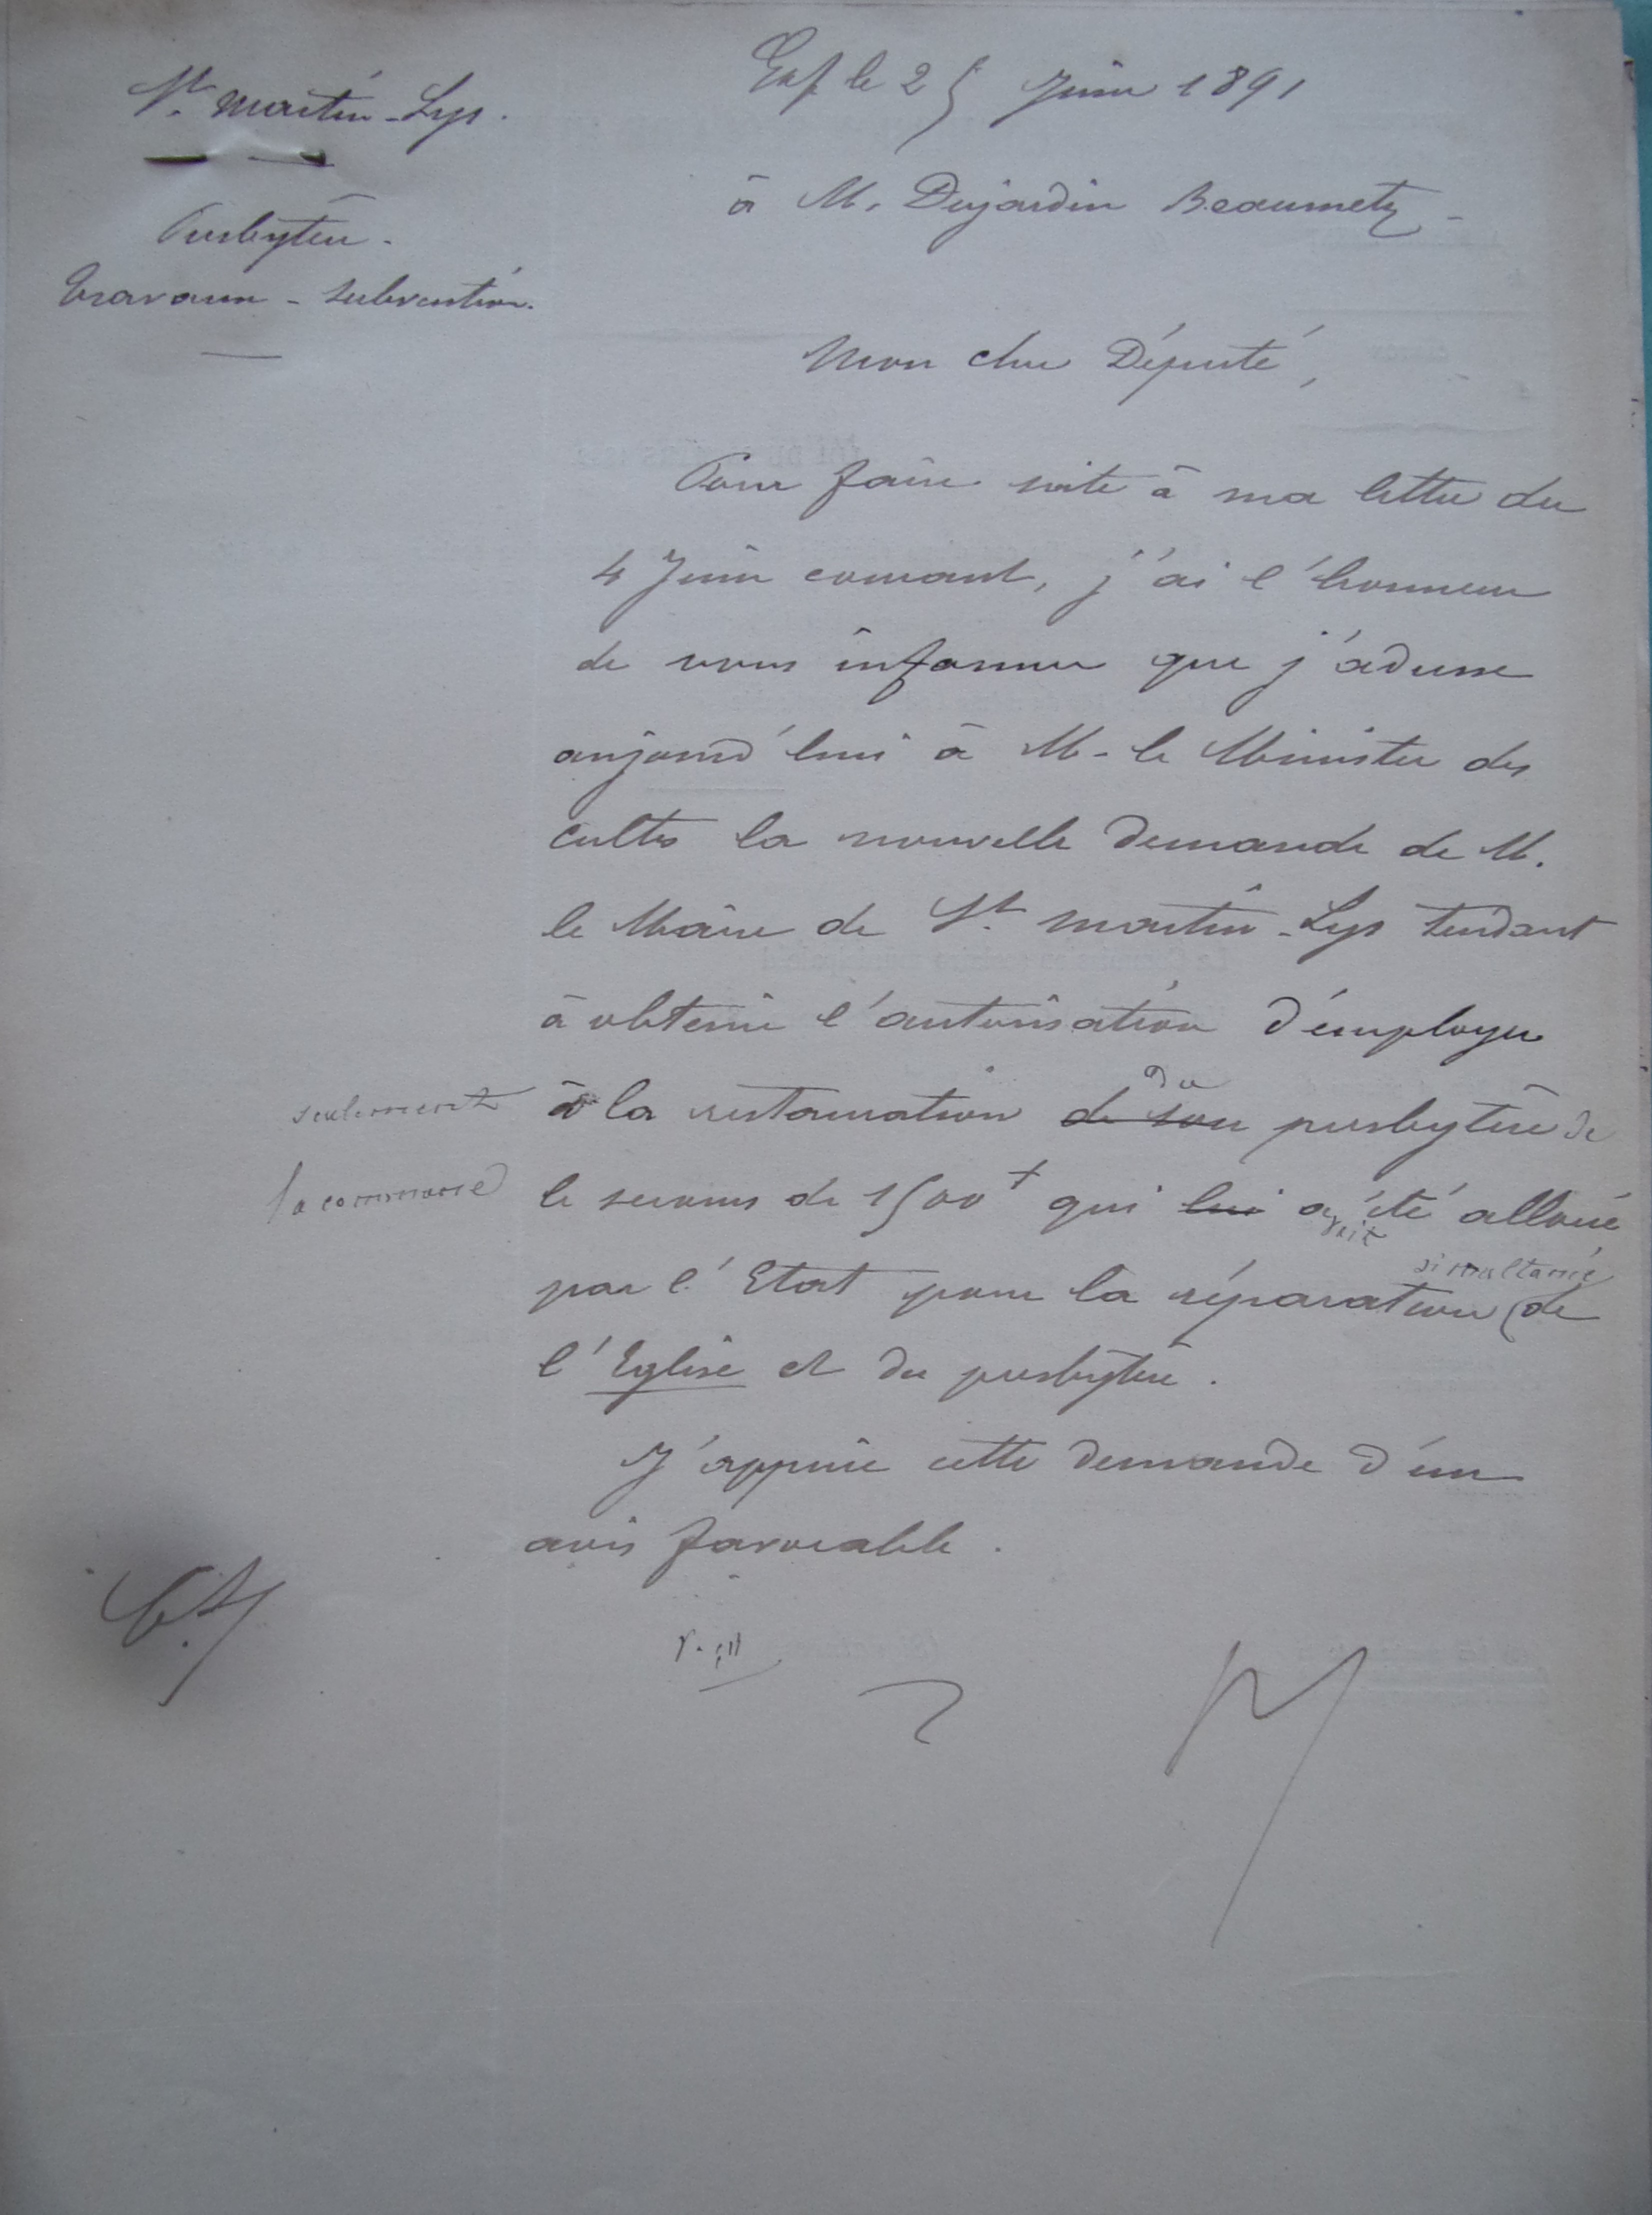 St. Martin-Lys.
Presbytère.
Travaux - subvention.
Exp le 25 Juin 1891
à M. Dujardin Beaumetz
Mon cher Député,
Pour faire suite à ma lettre du
4 Juin courant, j'ai l'honneur
de vous informer que j'adresse
aujourd'hui à M. le Ministre des
cultes la nouvelle demande de M.
le Maire de St. Martin-Lys tendant
à obtenir l'autorisation d'employer
seulement à la restauration de son du presbytère de
la commune le secours de 1500 f qui lui avait été alloué
par l'Etat pour la réparation simultanée de
l'Eglise et du presbytère.
J'appuie cette demande d'un
avis favorable.